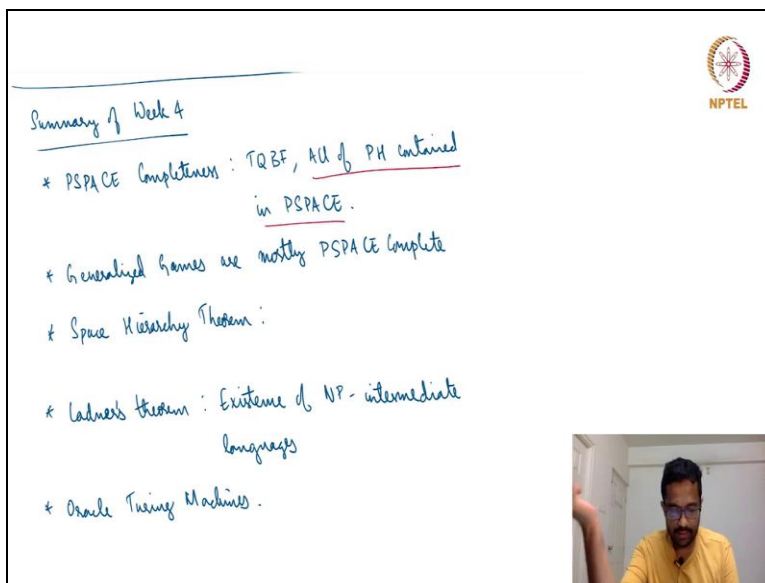 NPTEL
Summary of Week 4
* PSPACE Completeness : TQBF, All of PH contained
in PSPACE.
* Generalized Games are mostly PSPACE Complete
* Space Hierarchy Theorem :
* Ladner's theorem : Existence of NP - intermediate
languages
* Oracle Turing Machines.